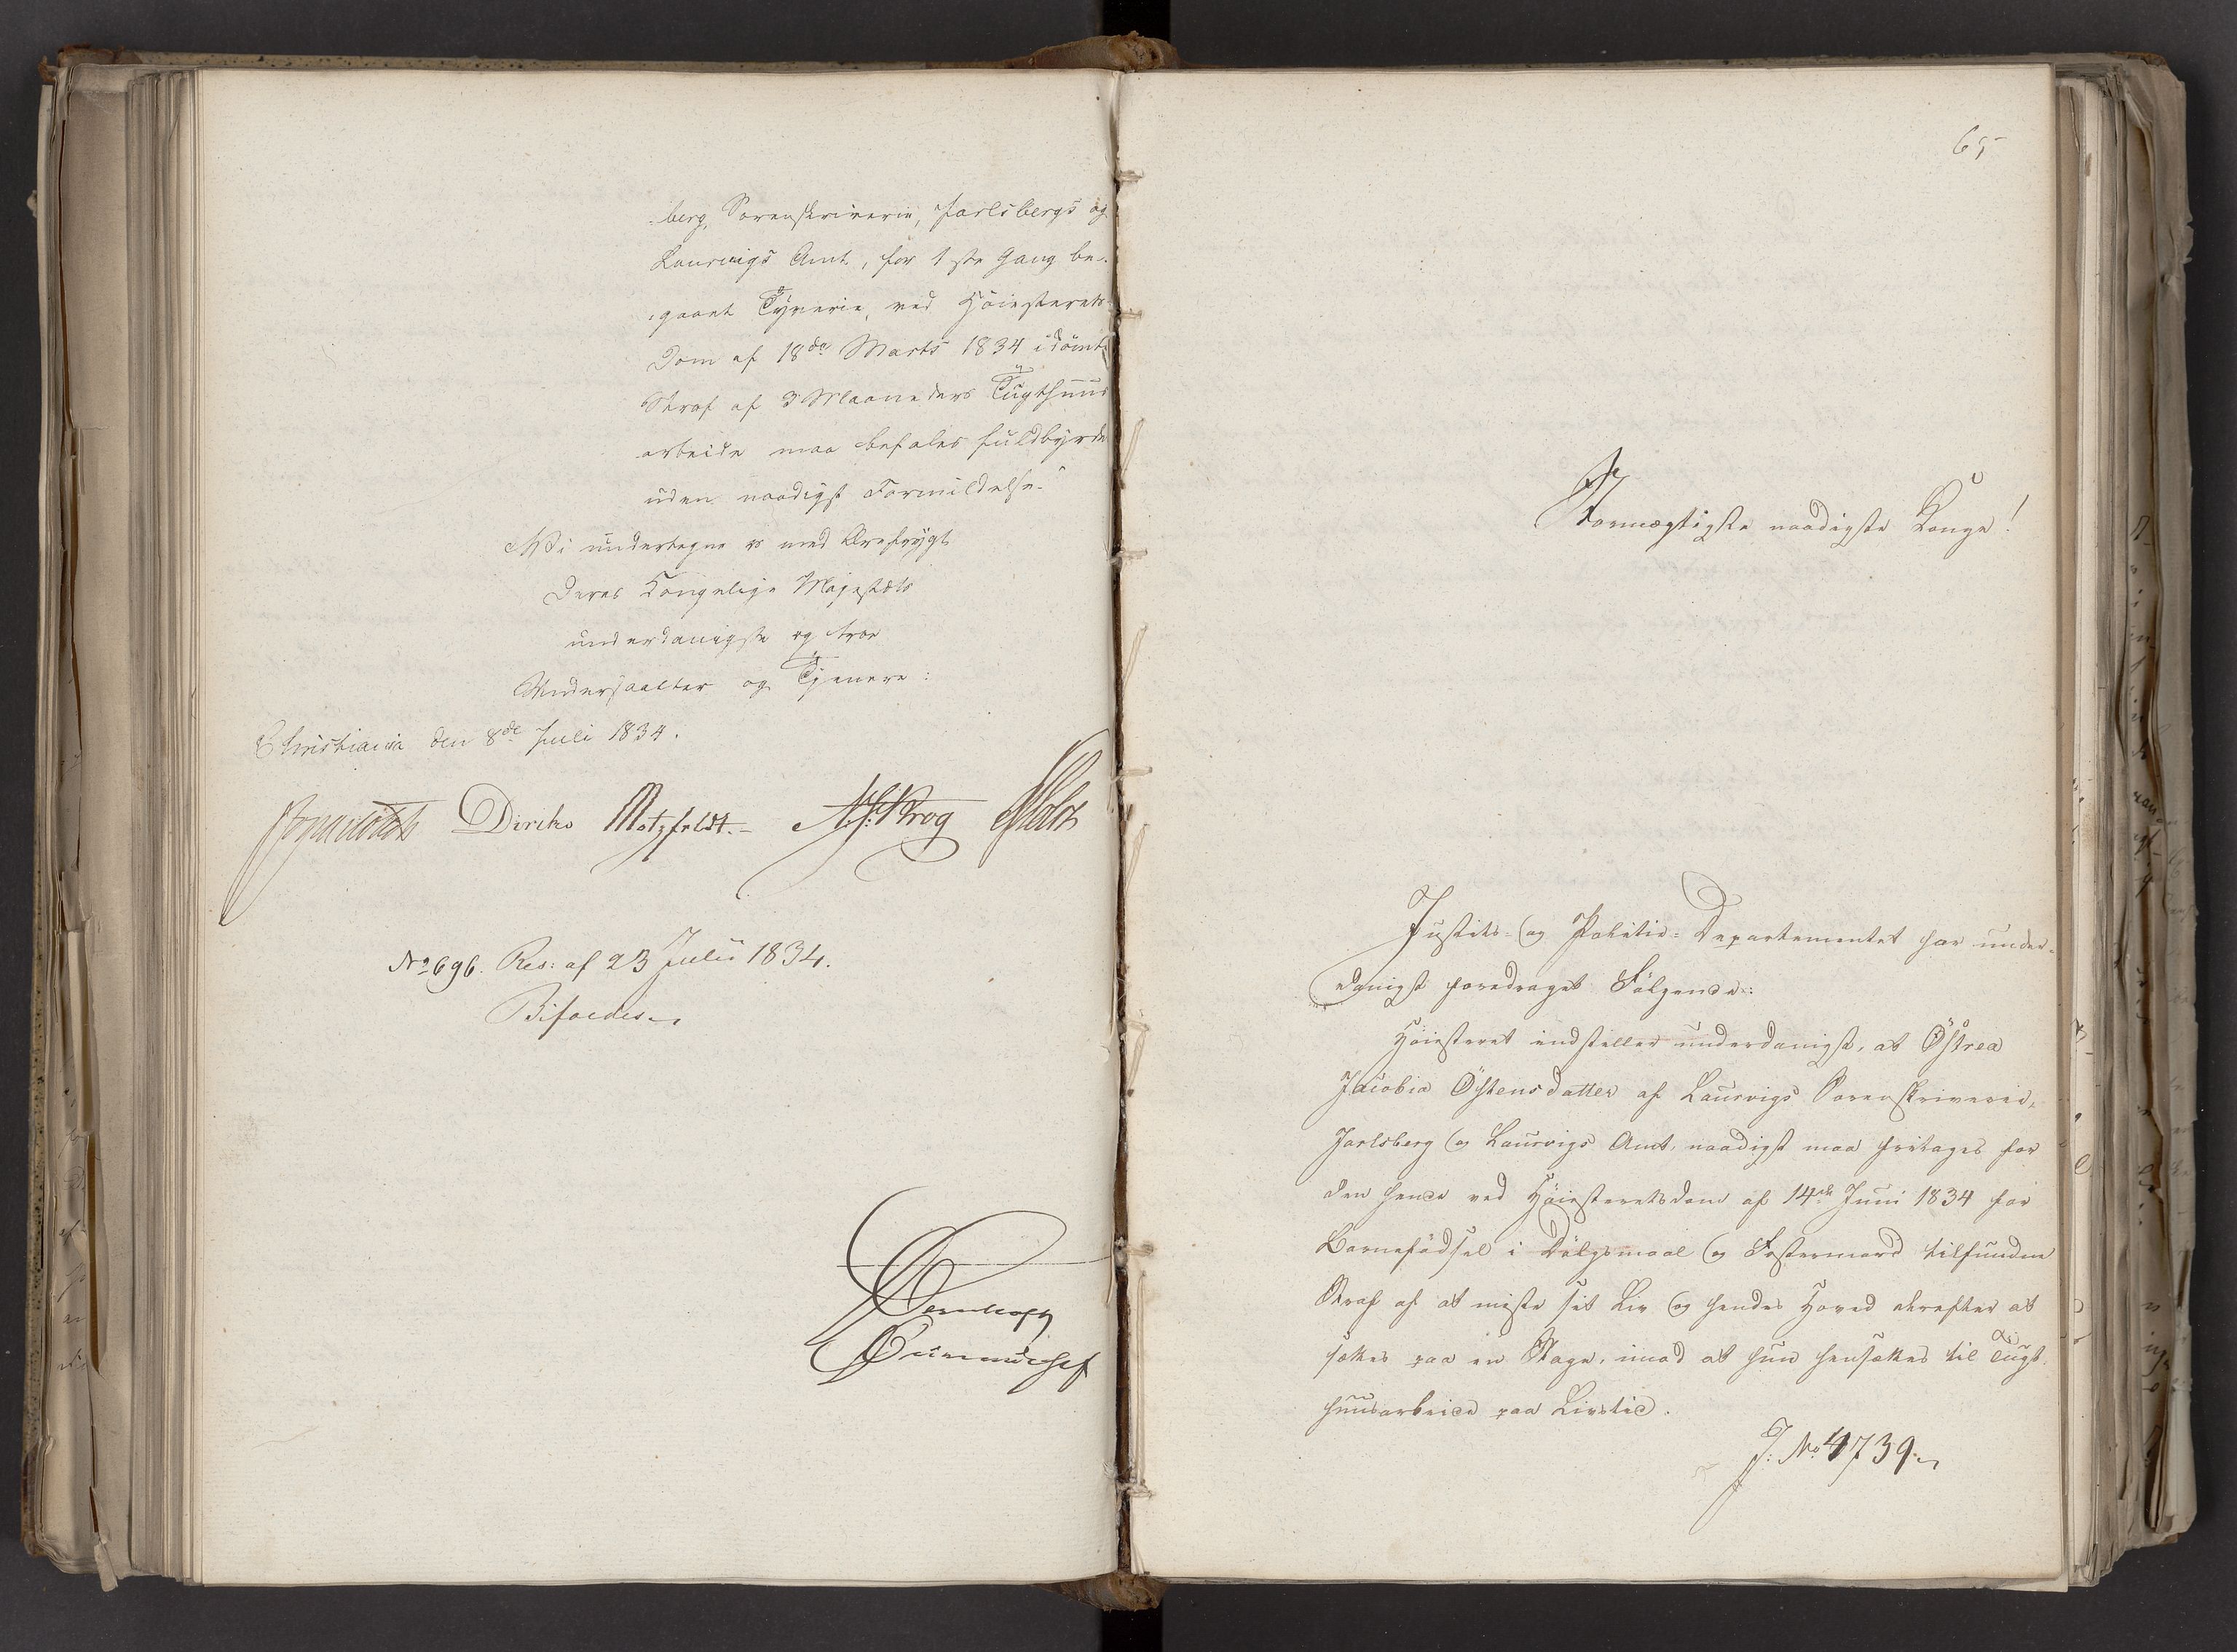 :berg, Sorenskriverie, Jarlsbergs og
Laurvigs Amt, for 1ste Gang be-
:gaaet Tyverie, ved Høiesterets-
Dom af 18de Marts 1834 idømte
Straf af 3 Maaneders Tugthuus
arbeide maa befales fuldbyrdet
uden naadigst Formildelse.
Vi undertegne os med Ærefrygt
Deres Kongelige Majestæts
underdanigste og troe
Undersaatter og Tjenere:
Christiania den 8de Juli 1834.
Diriks Motzfeldt.- Krog
No 696. Res: af 23 Julii 1834.
Bifaldes.
65
Stormægtigste naadigste Konge!
Justits- og Politie-Departementet har under-
danigst foredraget Følgende:
Høiesteret indstiller underdanigst, at Østrea
Jacobia Østensdatter af Laurvigs Sorenskriverie,
Jarlsberg og Laurvigs Amt, naadigst maa fritages for
den hende ved Høiesteretsdom af 14de Juni 1834 for
Barnefødsel i Dølgsmaal og Fostermord tilfundne
Straf af at miste sit Liv og hendes Hoved derefter at
sættes paa en Stage, imod at hun hensættes til Tugt-
huusarbeide paa Livstid.
J: No 4739.